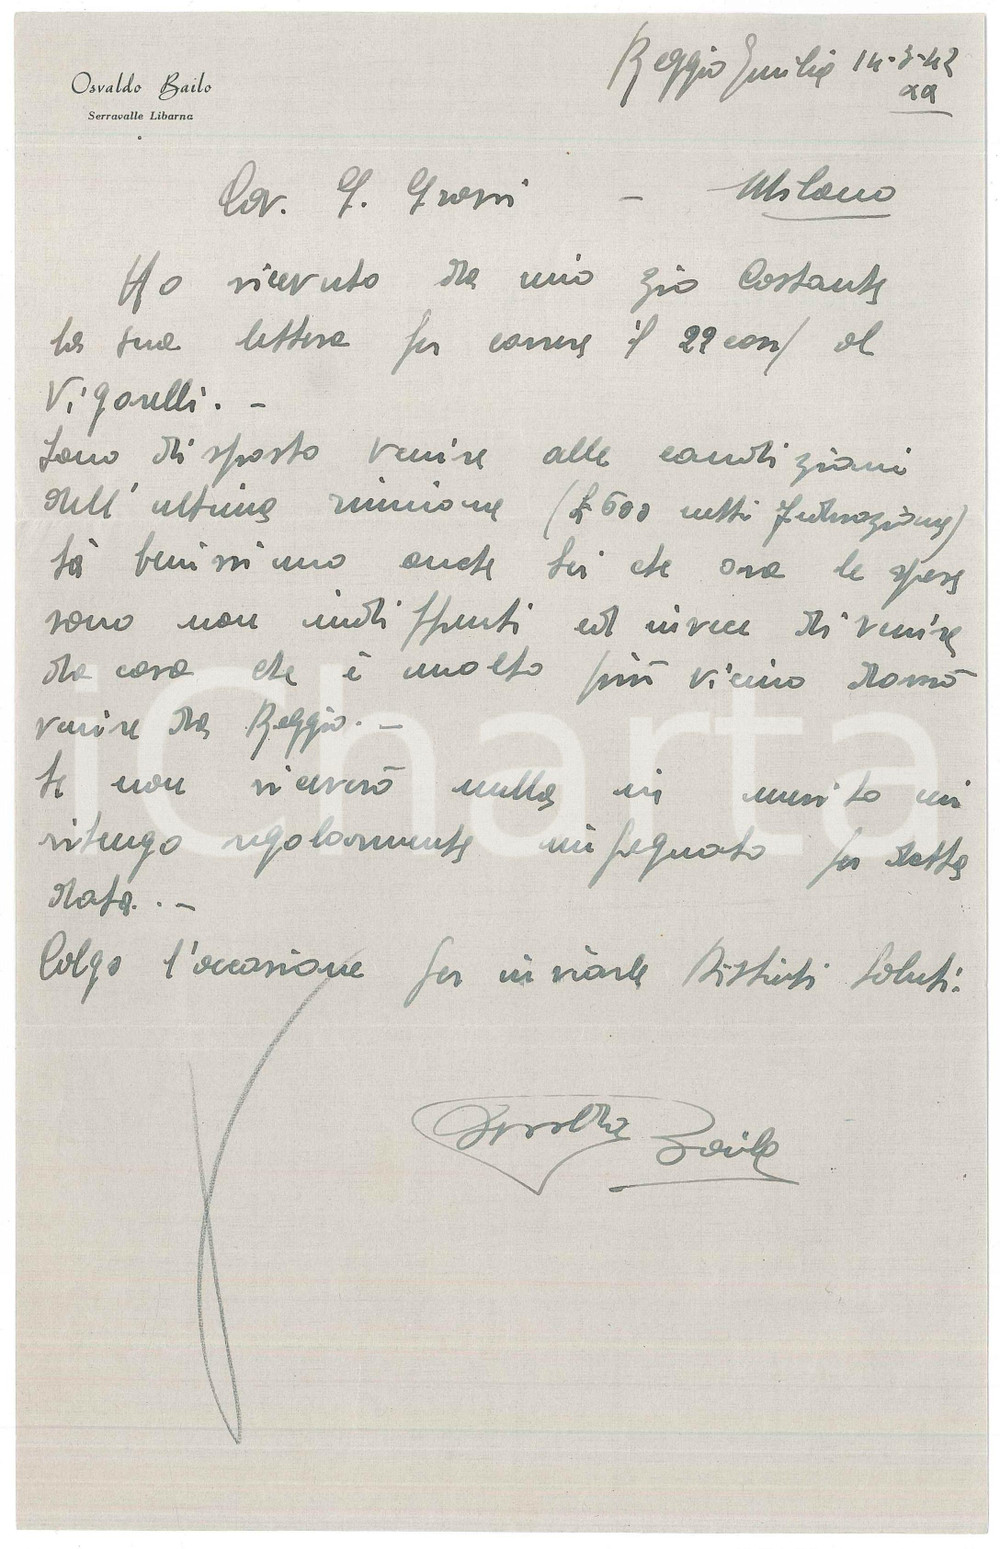 Osvaldo Bailo
Serravalle Libarna
Reggio Emilia 14-3-42
XX
Cav. G. Grassi - Milano
Ho ricevuto da mio zio Costante
la sua lettera per correre il 22 corr/ al
Vigorelli. -
Sono disposto venire alle condizioni
dell'ultima riunione (£ 600 netti Federazione)
Sà benissimo anche Lei che ora le spese
sono non indifferenti ed invece di venire
da casa che è molto più vicino dovrò
venire da Reggio. -
Se non riceverò nulla in merito mi
ritengo regolarmente impegnato per detta
data. -
Colgo l'occasione per inviarle Distinti Saluti.
Osvaldo Bailo
iCharta